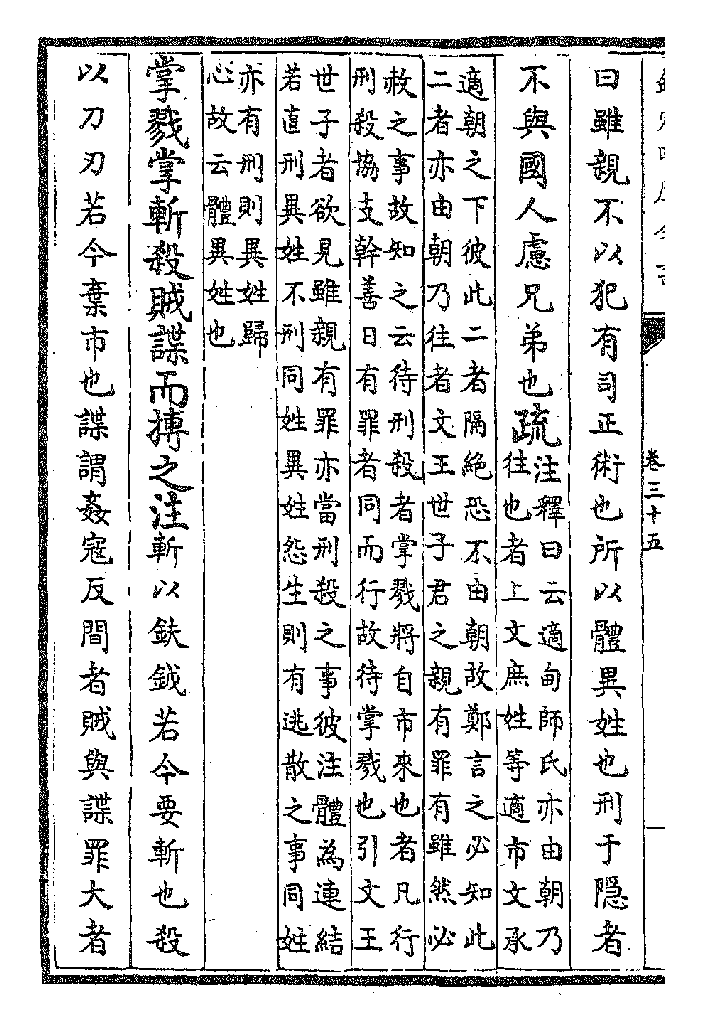 卷三十五
曰雖親不以犯有司正術也所以體異姓也刑于隱者
不與國人慮兄弟也疏
注釋曰云適甸師氏亦由朝乃
往也者上文庶姓等適市文承
適朝之下彼此二者隔絶恐不由朝故鄭言之必知此
二者亦由朝乃往者文王世子君之親有罪有雖然必
赦之事故知之云待刑殺者掌戮將自市來也者凡行
刑殺協支幹善日有罪者同而行故待掌戮也引文王
世子者欲見雖親有罪亦當刑殺之事彼注體為連結
若直刑異姓不刑同姓異姓怨生則有逃散之事同姓
亦有刑則異姓歸
心故云體異姓也
掌戮掌斬殺賊諜而搏之注斬以鈇鉞若今要斬也殺
以刀刃若今棄市也諜謂姦寇反間者賊與諜罪大者